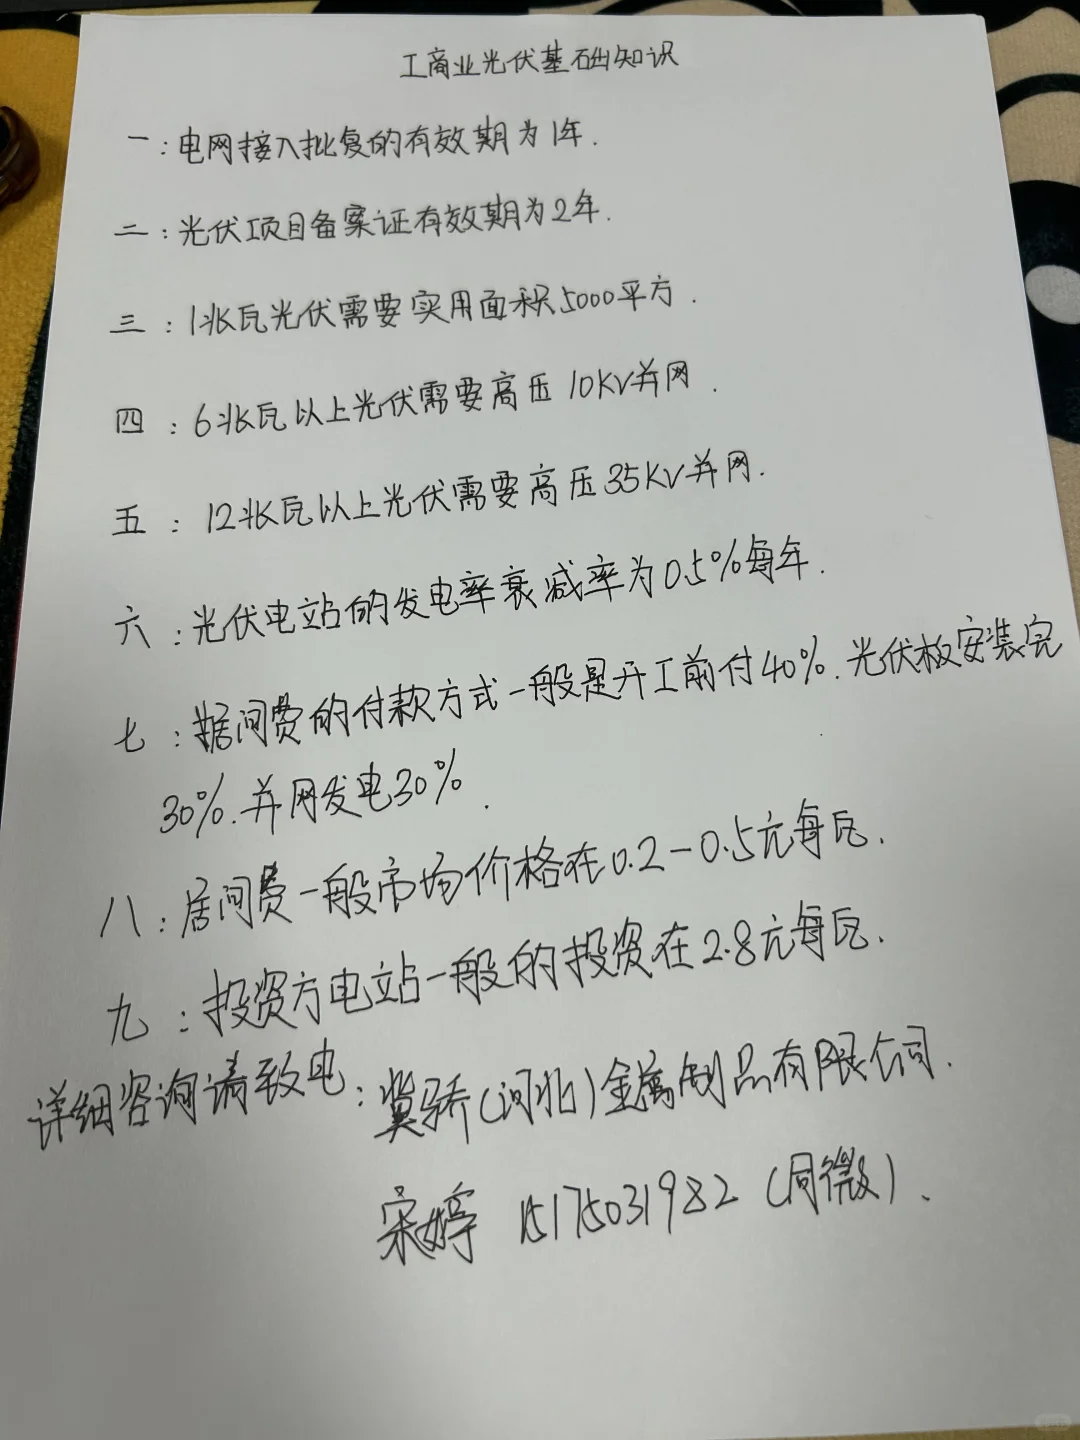 工商业光伏基础知识
一：电网接入批复的有效期为1年.
二：光伏项目备案证有效期为2年.
三：1兆瓦光伏需要实用面积5000平方.
四：6兆瓦以上光伏需要高压10KV并网.
五：12兆瓦以上光伏需要高压35KV并网.
六：光伏电站的发电率衰减率为0.5%每年.
七：居间费的付款方式一般是开工前付40%.光伏板安装完
30%.并网发电30%.
八：居间费一般市场价格在0.2-0.5元每瓦.
九：投资方电站一般的投资在2.8元每瓦.
详细咨询请致电：冀骄(河北)金属制品有限公司.
宋婷 15175031982 (同微).